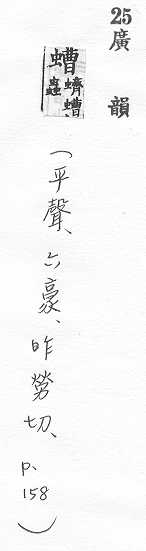 25廣韻
螬蠐螬、蟲
（平聲、六豪、昨勞切、p.158）